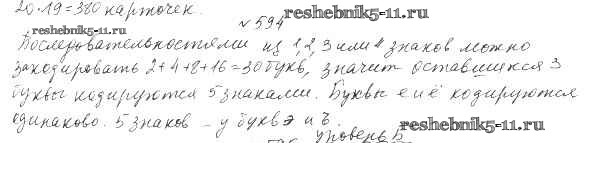 20·19=380 карточек.
№594 reshebnik5-11.ru
Последовательностями из 1, 2, 3 или 4 знаков можно
закодировать 2+4+8+16=30 букв, значит оставшиеся 3
буквы кодируются 5 знаками. Буквы е и ё кодируются
одинаково. 5 знаков – у букв э и ъ.
Уровень Б reshebnik5-11.ru